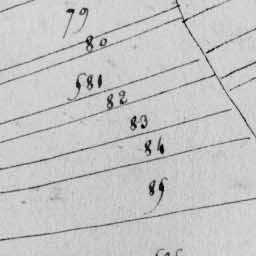 79
80
581
82
83
84
85